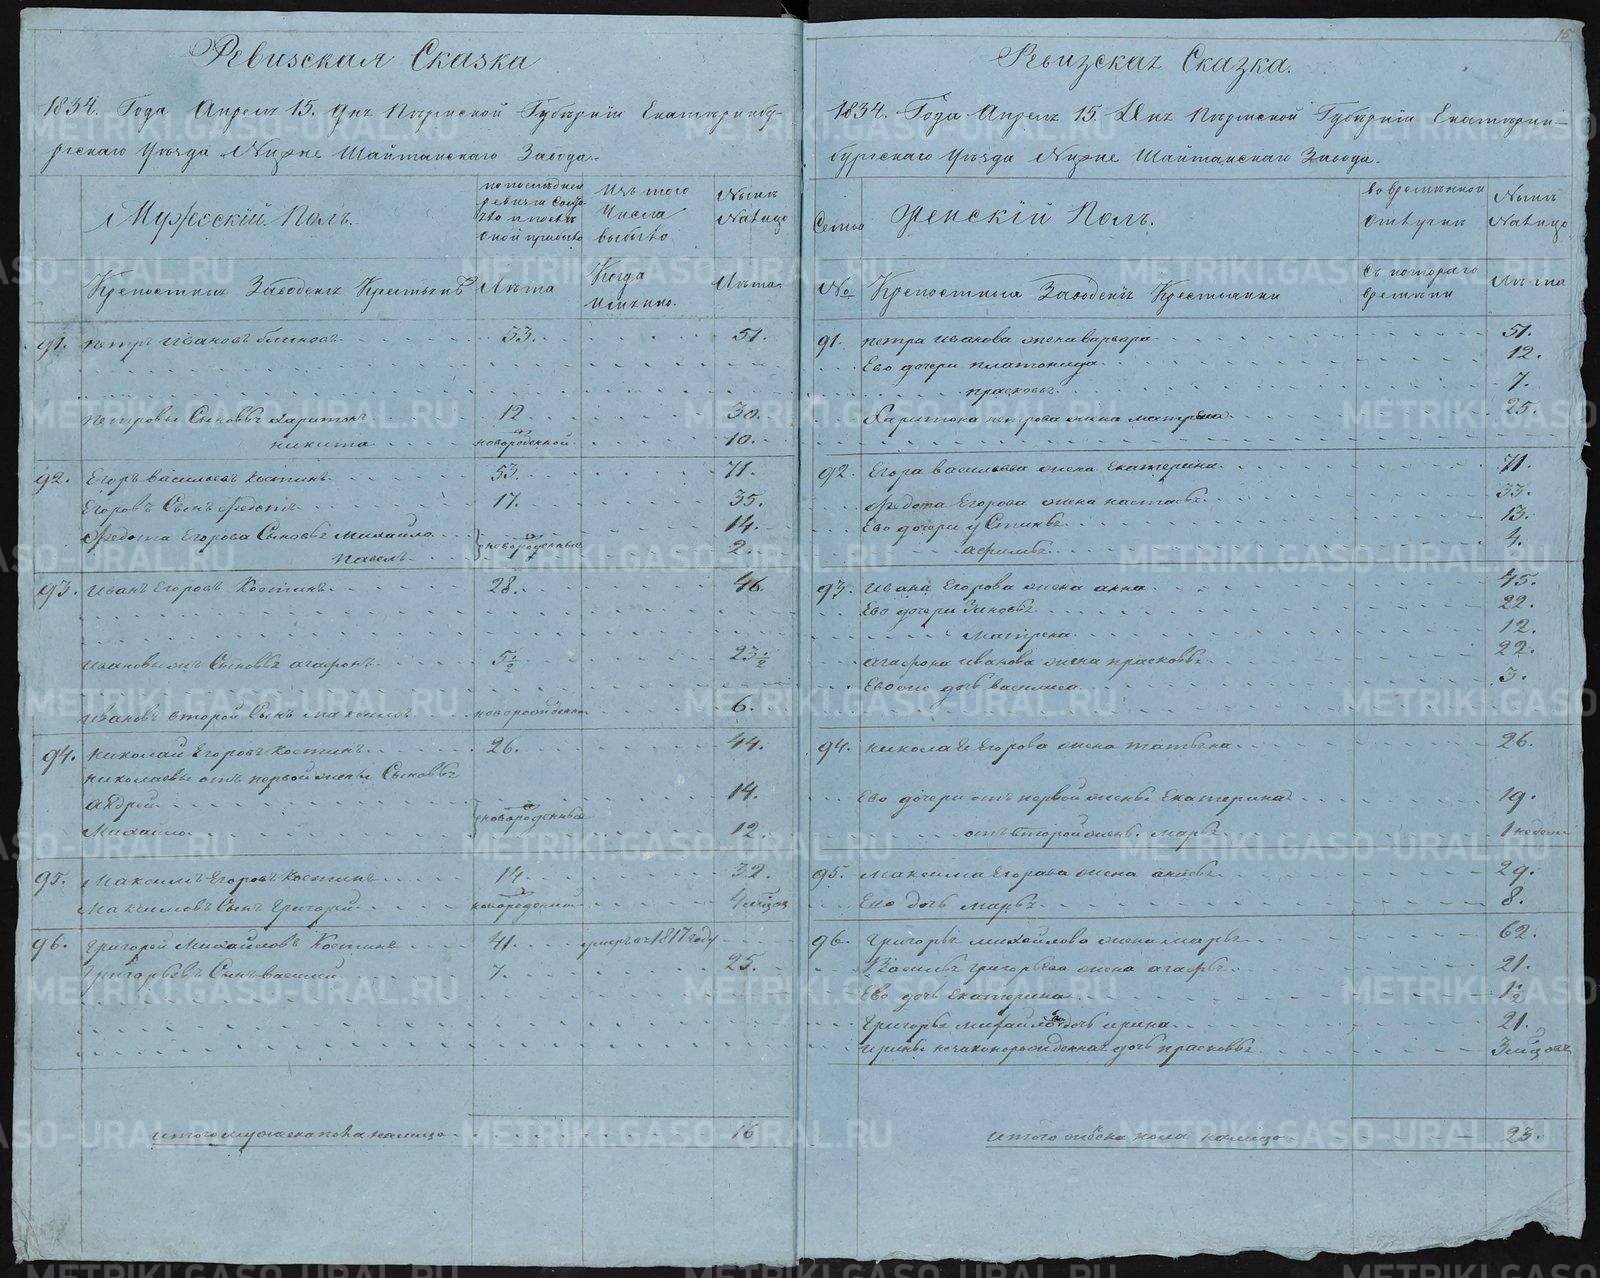 Ревизская Сказка
1834. Года Апреля 15. дня Пермской Губернии Екатеринбу-
ргскаго Уезда Нижне Шайтанскаго Завода.
Мужескiй Полъ.
по последней ревизи состояло и после оной прибыло
Изъ того Числа выбыло
Ныне Налицо
Крепостныя Заводскiя Крестьяне
Лета
Когда имянно.
Лета
91. петръ Ивановъ блиновъ 53. 51.
петровы Сыновья харитонъ 12. 30.
никита новорожденной 10.
92. Егоръ васильевъ Костинъ 53. 71.
Егоровъ Сынъ Федотъ 17. 35.
Федота Егорова Сыновья михайло 14.
новорожденные
павелъ 2.
93. Иванъ Егоровъ Костинъ 28. 46
Ивановы Сыновья агафонъ 5½ 23½
Ивановъ второй Сынъ 6.
94. николай Егоровъ Костинъ 26. 44.
николаевы отъ первой жены Сыновья
андрей 14.
новорожденные
Михайло 12.
95. Максимъ Егоровъ Костинъ 14. 32.
Максимовъ Сынъ Григорей новорожденной 4 месяца
96. Григорей Михайловъ Костинъ 41. умеръ въ 1817 году
Григорьевъ Сынъ василий 7. 25.
итого мужеска пола налицо 16
15
Ревизская Сказка.
1834. Года Апреля 15. Дня Пермской Губернии Екатерин-
бургскаго Уезда Нижне Шайтанскаго Завода.
Семьи
Женскiй Полъ.
во временной отлучке
Ныне Налицо
№
Крепостныя Заводскiя Крестьянки
Съ котораго времени
Лета
91. петра Иванова жена варвара 51.
Ево дочери платонида 12.
прасковья 7.
харитона петрова жена матрена 25.
92. Егора васильева жена Екатерина 71.
Федота Егорова жена настасья 33.
Ево дочери устинья 13.
афимья 4.
93. Ивана Егорова жена анна 45.
Ево дочери Зиновья 22.
матрена 12.
агафона Иванова жена прасковья 22.
Ево же дочь василиса 3.
94. николая Егорова жена татьяна 26.
Ево дочери отъ первой жены Екатерина 19.
отъ второй жены марья 1 недели
95. Максима Егорова жена 29.
Ево дочь марья 8.
96. Григорья михайлова жена марья 62.
Василья григорьева жена агафья 21.
Ево дочь Екатерина 1½
Григорья михайлова дочь ирина 21.
ирины незаконорожденная дочь прасковья 3 месяцовъ
итого женска пола налицо 23.
METRIKI.GASO-URAL.RU